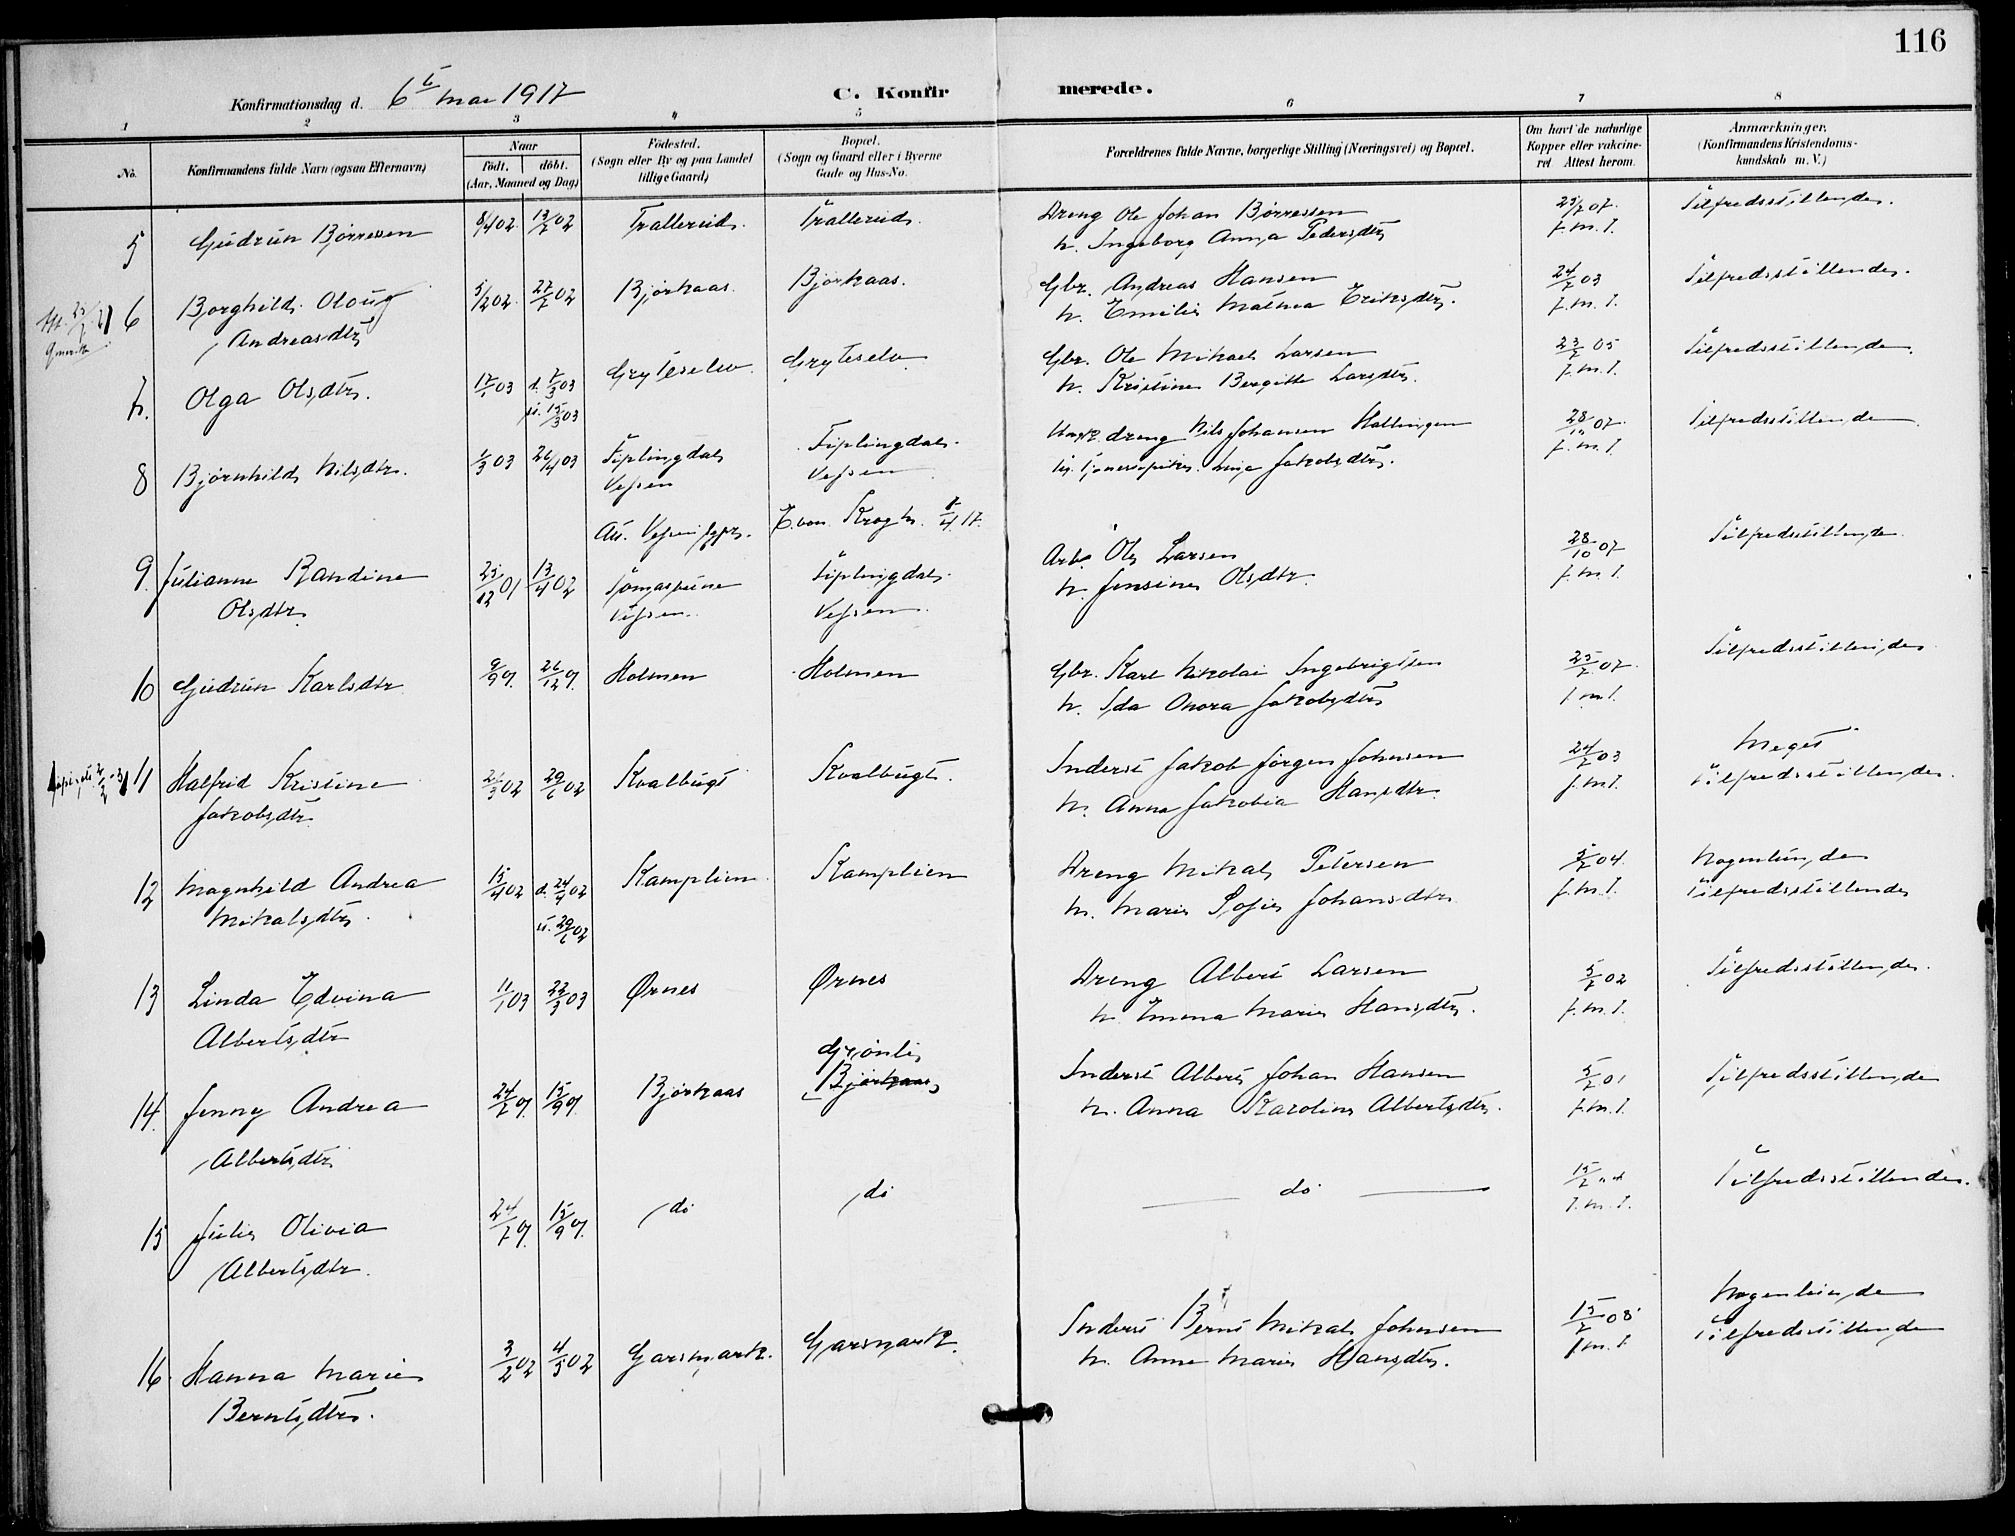 116
Konfirmationsdag d. 6te mai 1917
C. Konfirmerede.
1 2 3 4 5 6 7 8
No.
Konfirmandens fulde Navn (ogsaa Efternavn)
Naar
födt. döbt.
(Aar, Maaned og Dag)
Födested.
(Sogn eller By og paa Landet
tillige Gaard)
Bopæl.
(Sogn og Gaard eller i Byerne
Gade og Hus-No.
Forældrenes fulde Navne, borgerlige Stilling (Næringsvei) og Bopæl.
Om havt de naturlige
Kopper eller vakcine-
ret Attest herom.
Anmærkninger.
(Konfirmandens Kristendoms-
kundskab m. V.)
5 Gudrun Börresen 8/4 02 13/7 02 Trallerud. Trallerud. Dreng Ole Johan Börresen 25/7 07. Tilfredsstillende.
h. Ingeborg Anna Pedersdtr f.m.l.
6 Borghild Oloug 5/2 02. 27/7 02 Björkaas. Björkaas. Gbr. Andreas Hansen 24/7 03 Tilfredsstillende.
Andreasdtr h. Emilie Mathea Eriksdtr. f.m.l.
7. Olga Olsdtr. 17/1 03 d. 7/3 03 Gryteselv Gryteselv Gbr. Ole Mikael Larsen 23/7 05 Tilfredsstillende.
i. 15/3 03 h. Kristine Bergitte Larsdtr. f.m.l.
8 Björnhild Nilsdtr. 1/3 03 26/4 03 Fiplingdal Fiplingdal. dreng Nils Johansen Hallingen 28/10 07. Tilfredsstillende
Vefsen Vefsen Jakobsdtr. f.m.l.
Att. Vefsen E. von Krogh. 17.
9. Julianne Randine 25/12 01 13/4 02 Tiplingdal. Arb. Ole Larsen 28/10 07 Tilfredsstillende
Olsdtr. Vefsen. Vefsen. h. Jensine Olsdtr. f.m.l.
10 Gudrun Karlsdtr 9/9 01. 26/12 01. Holmen Holmen Gbr. Karl Nikolai Ingebrigtsen 25/7 07 Tilfredsstillende
h. Ida Onora Jakobsdtr f.m.l.
11 Halfrid Kristine 29/6 02 Kvalbugt Kvalbugt. Inderst Jakob Jörgen Johnsen 24/7 03 Meget
Jakobsdtr. h. Anna Jakobia Hansdtr. f.m.l. tilfredsstillende.
12 Magnhild Andrea 15/4 02 d. 24/4 02 Kamplien. Kamplien Dreng Mikal Petersen 5/7 04. Nogenlunde
Mikalsdtr. i. 29/6 02 h. Marie Sofie Johansdtr f.m.l. tilfredsstillende
13 Linda Edvina 11/1 03 22/3 03 Ørnes Ørnes Dreng Albert Larsen 5/7 02 Tilfredsstillende.
Albertsdtr h. Emma Marie Hansdtr. f.m.l.
Grönli
14. Jenny Andrea 24/7 01. 15/9 01. Björkaas Björkaas Inderst Albert Johan Hansen 5/7 01 Tilfredsstillende
Albertsdtr h. Anna Karoline Albertsdtr. f.m.l.
15 Julie Olivia 24/7 01. 15/9 01. do do do 15/7 Tilfredsstillende.
Albertsdtr. f.m.l.
16 Hanna Marie 3/2 02 4/5 02 Garsmark. Garsmark. Inderst Bernt Mikal Johnsen 15/7 08 Nogenlunde
Berntsdtr. h. Anne Marie Hansdtr. f.m.l. tilfredsstillende